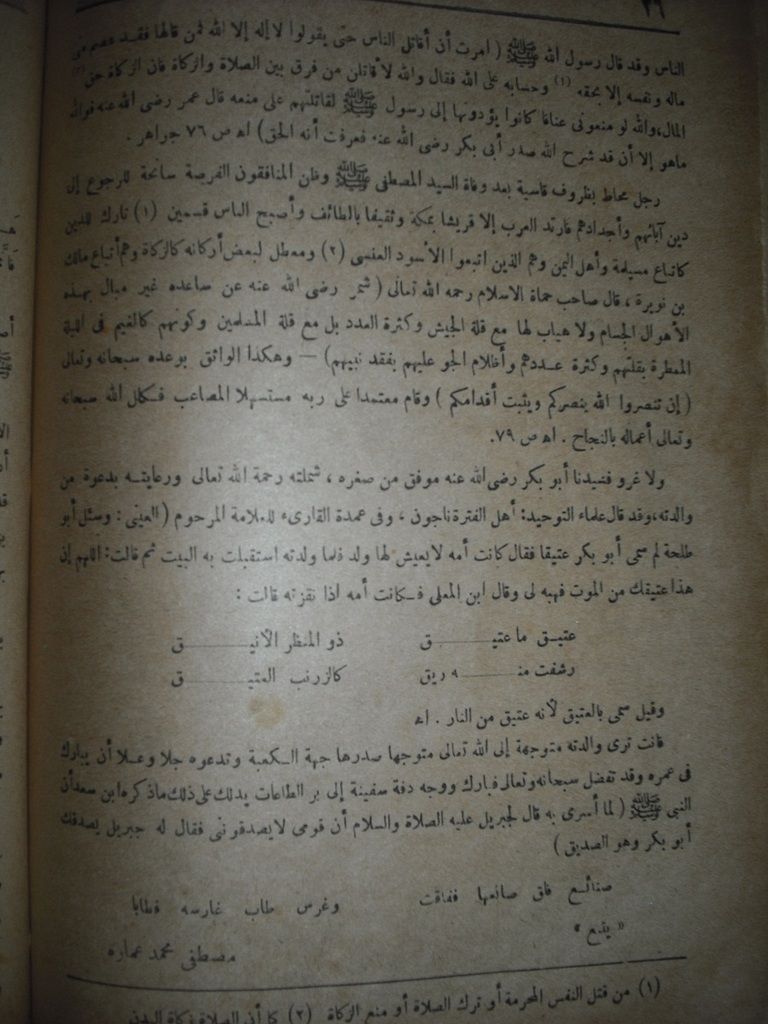 الناس وقد قال رسول الله ﷺ ( امرت أن أقاتل الناس حتى يقولوا لا إله إلا الله فمن قالها فقد عصم مني
ماله ونفسه إلا بحقه (١) وحسابه على الله فقال والله لأقاتلن من فرق بين الصلاة والزكاة فان الزكاة حق (٢)
المال، والله لو منعونى عناقا كانوا يؤدونها إلى رسول ﷺ لقاتلتهم على منعه قال عمر رضى الله عنه فوالله
ماهو إلا أن قد شرح الله صدر أبى بكر رضى الله عنه فعرفت أنه الحق ) اه ص ٧٦ جواهر .
رجل محاط بظروف قاسية بعد وفاة السيد المصطفى ﷺ وظن المنافقون الفرصة سانحة للرجوع إلى
دين آبائهم وأجدادهم فارتد العرب إلا قريشا بمكة وثقيفا بالطائف وأصبح الناس قسمين (١) تارك للدين
كاتباع مسيلمة وأهل اليمن وهم الذين اتبعوا الأسود العنسى (٢) ومعطل لبعض أركانه كالزكاة وهم أتباع مالك
بن نويرة ، قال صاحب حماة الاسلام رحمه الله تعالى ( شمر رضى الله عنه عن ساعده غير مبال بهذه
الأهوال الجسام ولا هياب لها مع قلة الجيش وكثرة العدد بل مع قلة المسلمين وكونهم كالغنم فى الليلة
الممطرة بقلتهم وكثرة عددهم وأظلام الجو عليهم بفقد نبيهم ) — وهكذا الواثق بوعده سبحانه وتعالى
( إن تنصروا الله ينصركم ويثبت أقدامكم ) وقام معتمدا على ربه مستسهلا المصاعب فكلل الله سبحانه
وتعالى أعماله بالنجاح . اه ص ٧٩.
ولا غرو فسيدنا أبو بكر رضى الله عنه موفق من صغره ، شملته رحمة الله تعالى ورعايته بدعوة من
والدته، وقد قال علماء التوحيد: أهل الفترة ناجون ، وفى عمدة القارىء للعلامة المرحوم ( العينى : وسئل أبو
طلحة لم سمى أبو بكر عتيقا فقال كانت أمه لا يعيش لها ولد فلما ولدته استقبلت به البيت ثم قالت: اللهم إن
هذا عتيقك من الموت فهبه لى وقال ابن المعلى فكانت أمه اذا نقزته قالت :
عتيق ما عتيــــق ذو المنظر الأنيــــق
رشفت منــــه ريق كالزرنب العتيــــق
وقيل سمى بالعتيق لأنه عتيق من النار . اه
فانت ترى والدته متوجهة إلى الله تعالى متوجها صدرها جهة الكعبة وتدعوه جلا وعلا أن يبارك
فى عمره وقد تفضل سبحانه وتعالى فبارك ووجه دفة سفينة إلى بر الطاعات يدلك على ذلك ماذكره ابن سعد أن
النبى ﷺ ( لما أسرى به قال لجبريل عليه الصلاة والسلام أن قومى لايصدقونى فقال له جبريل يصدقك
أبو بكر وهو الصديق )
صنائع فاق صانعها ففاقت وغرس طاب غارسه فطابا
« يتبع » مصطفى محمد عماره
(١) من قتل النفس المحرمة أو ترك الصلاة أو منع الزكاة (٢) كما أن الصلاة زكاة البدن